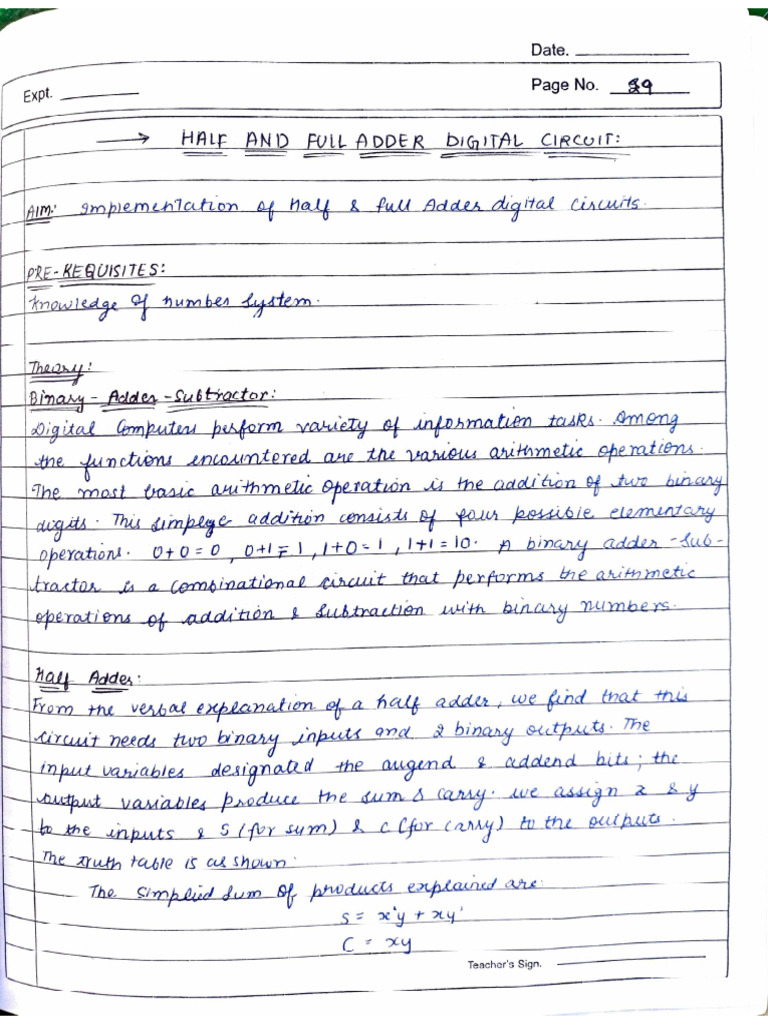 Date.
Expt.
Page No. 39
→ HALF AND FULL ADDER DIGITAL CIRCUIT:
AIM: Implementation of Half & full Adder digital circuits.
PRE-REQUISITES:
Knowledge of number system.
Theory:
Binary-Adder-Subtractor:
Digital Computers perform variety of information tasks. Among
the functions encountered are the various arithmetic operations.
The most basic arithmetic operation is the addition of two binary
digits. This simple addition consists of four possible elementary
operations. 0+0=0, 0+1=1, 1+0=1, 1+1=10. A binary adder-sub-
tractor is a combinational circuit that performs the arithmetic
operations of addition & subtraction with binary numbers.
Half Adder:
From the verbal explanation of a half adder, we find that this
circuit needs two binary inputs and 2 binary outputs. The
input variables designated the augend & addend bits; the
output variables produce the sum & carry. we assign x & y
to the inputs & S (for sum) & C (for carry) to the outputs.
The truth table is as shown:
The simplied sum of products explained are:
S = x'y + xy'
C = xy
Teacher's Sign.